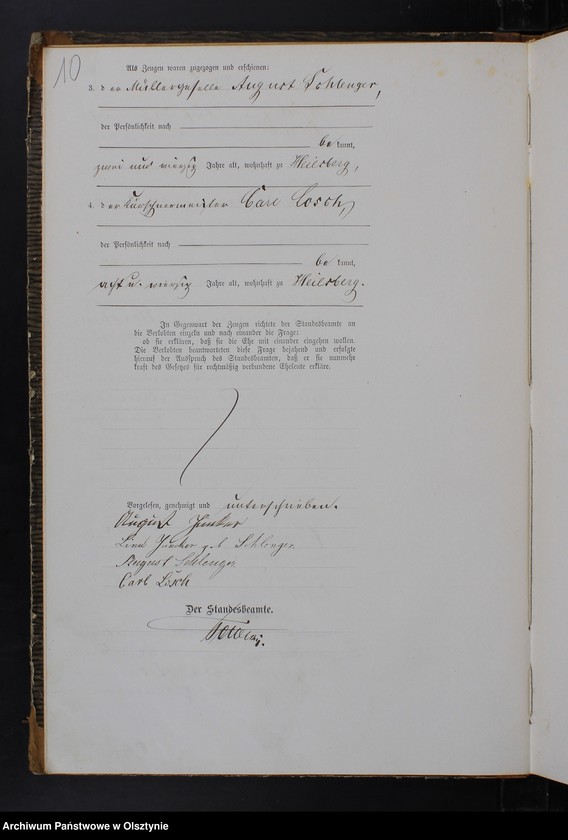 10
Als Zeugen waren zugezogen und erschienen:
3. der Müllergeselle August Schlenger,
der Persönlichkeit nach
bekannt,
zwei und vierzig Jahre alt, wohnhaft zu Heilsberg,
4. der Kürschnermeister Carl Losch,
der Persönlichkeit nach
bekannt,
acht u. vierzig Jahre alt, wohnhaft zu Heilsberg.
In Gegenwart der Zeugen richtete der Standesbeamte an
die Verlobten einzeln und nach einander die Frage:
ob sie erklären, daß sie die Ehe mit einander eingehen wollen.
Die Verlobten beantworteten diese Frage bejahend und erfolgte
hierauf der Ausspruch des Standesbeamten, daß er sie nunmehr
kraft des Gesetzes für rechtmäßig verbundene Eheleute erkläre.
Vorgelesen, genehmigt und unterschrieben.
August Junker
Lina Junker geb Schlenger
August Schlenger
Carl Losch
Der Standesbeamte.
Archiwum Państwowe w Olsztynie